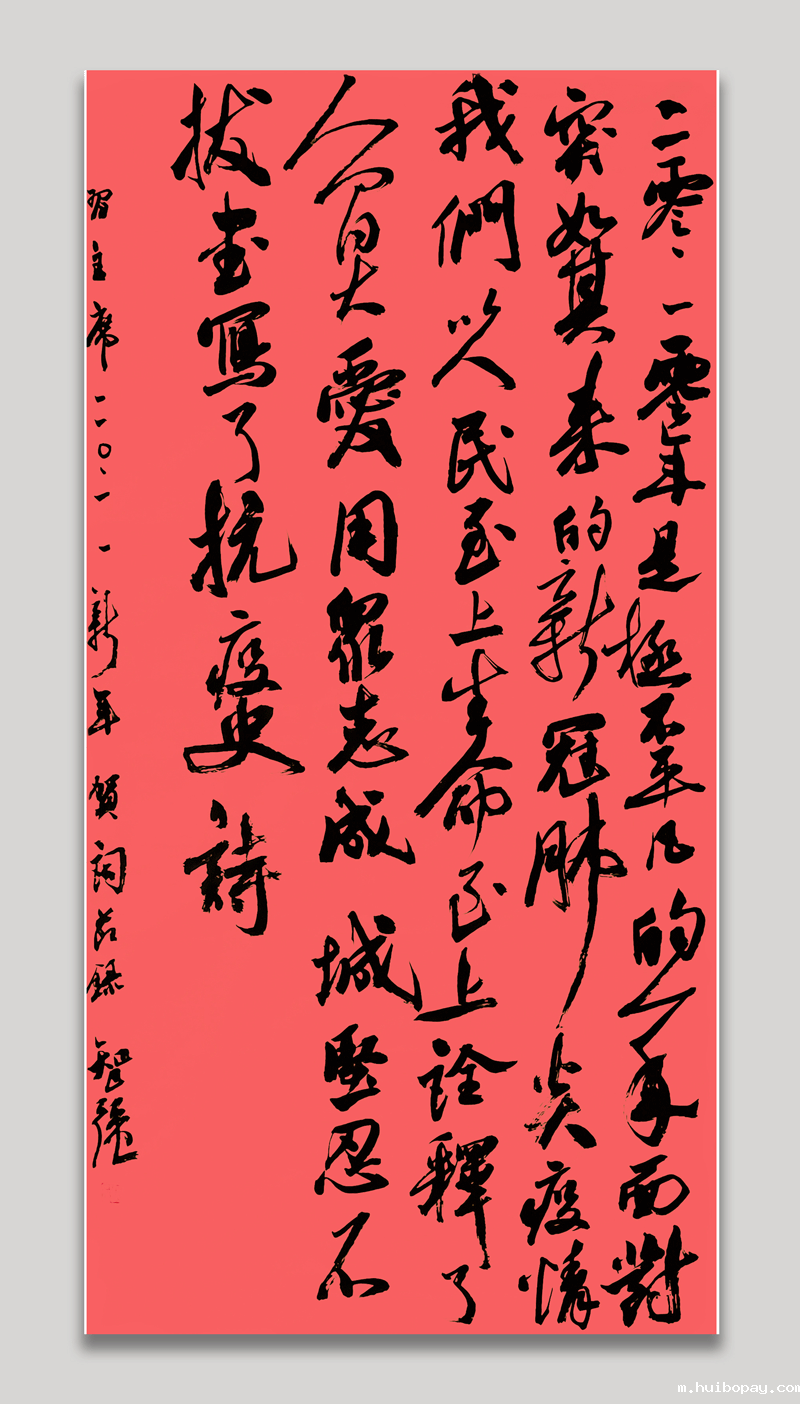 二零二零年是極不平凡的一年面對
突如其来的新冠肺炎疫情
我們以人民至上生命至上詮釋了
人間大愛用眾志成城堅忍不
拔書寫了抗疫史詩
習主席二〇二一新年賀詞节錄 智強
m.huibopay.com